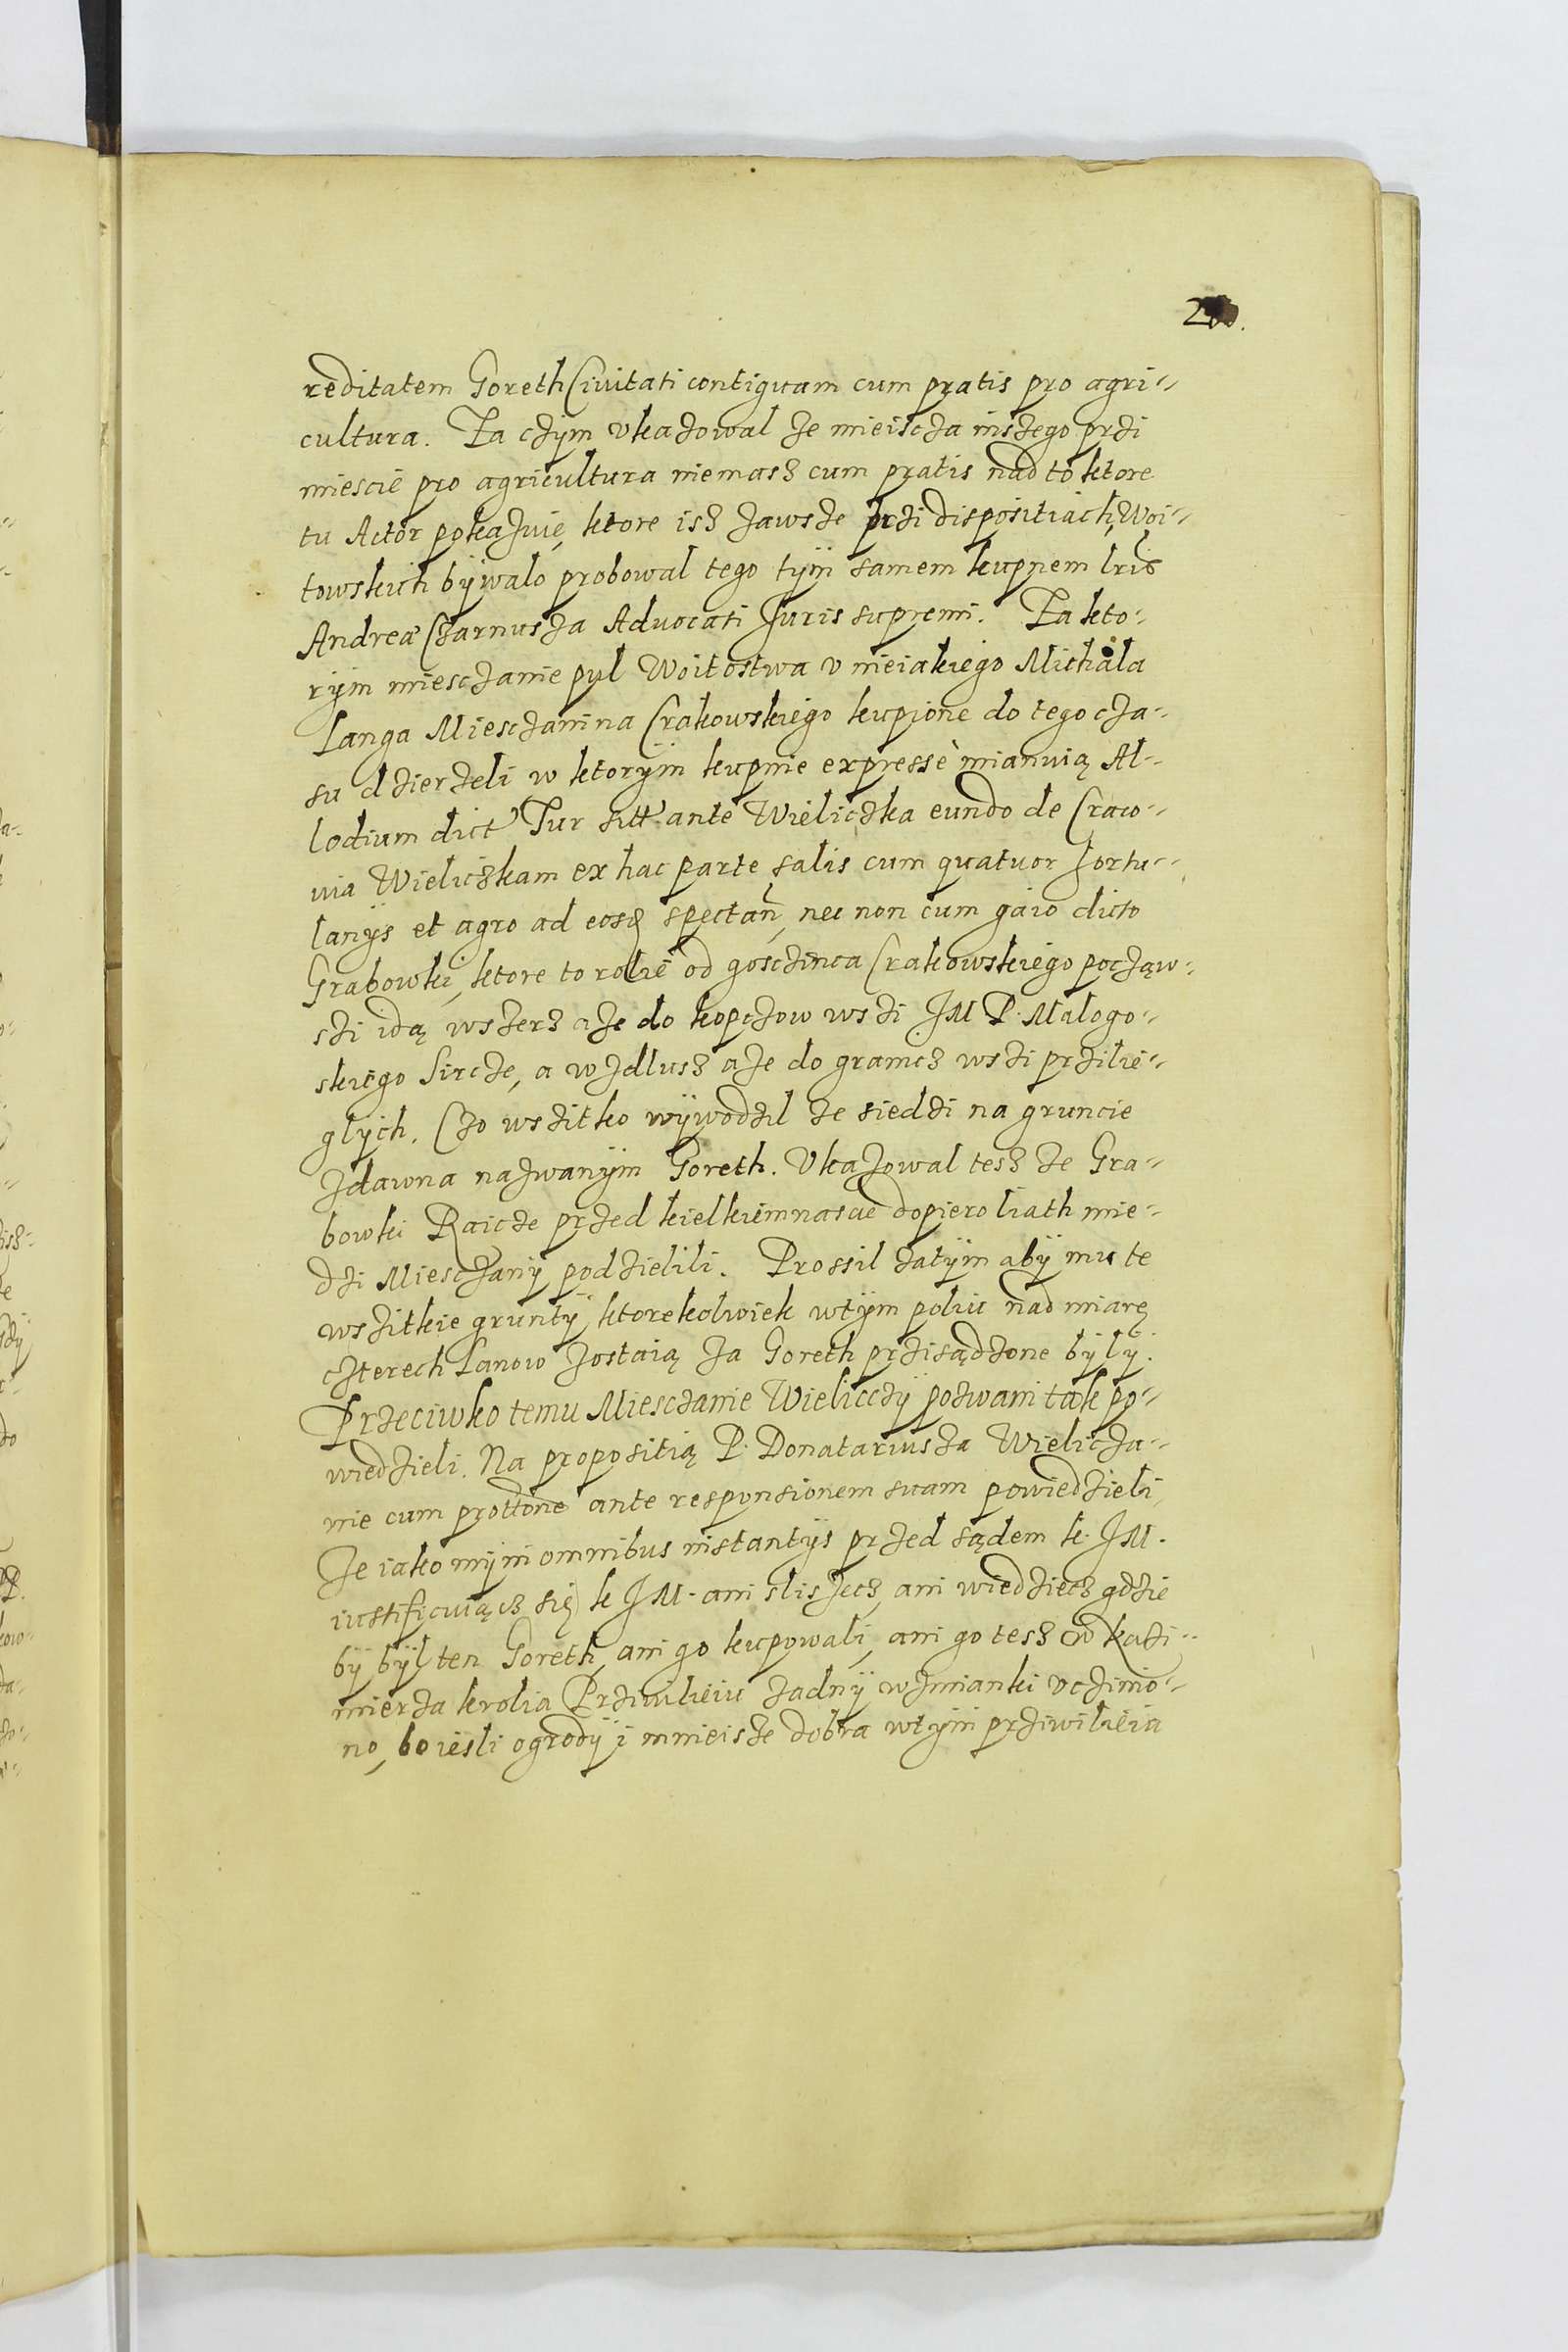 reditatem Goreth Civitati contiguam cum pratis pro agri-
cultura. Za czÿm vkazowal ze mieiscza inszego przi
miescie pro agricultura niemasz cum pratis nad to ktore
tu Actor pokazuie, ktore isz zawsze przi dispositiach Woi-
towskich bÿwalo probowal tego tÿm samem kupnem lris
Andreæ Czarnusza Advocati Juris supremi. Za kto-
rÿm miesczanie pul Woitostwa v nieiakiego Michala
Langa Miesczanina Crakowskiego kupione do tego cza-
su dzierzeli w ktorÿm kupnie expressè mianuią Al-
lodium dict Tur sitt ante Wieliczka eundo de Craco-
uia Wieliczkam ex hac parte salis cum quatuor hortu-
lanÿs et agro ad eosq spectan, nec non cum gaio dicto
Grabowki, ktore to rolie od gosczinca Crakowskiego począw-
szi idą wszersz aze do kopczow wszi JM P. Malogo-
skiego Sircze, a wzdlusz aze do granicz wszi przilie-
glÿch. Czo wszitko wÿwodzil ze siedzi na gruncie
zdawna nazwanÿm Goreth. Vkazowal tesz ze Gra-
bowki Raicze przed kielkiemnascie dopiero liath mie-
dzi Miesczanÿ podzielili. Prossil zatÿm abÿ mu te
wszitkie gruntÿ ktorekolwiek wtÿm poliu nad miarę
czterech Lanow zostaią za Goreth przisądzone bÿlÿ.
Przeciwko temu Miesczanie Wielicczÿ pozwani tak po-
wiedzieli. Na propositią P. Donatariusza Wielicza-
nie cum prottone ante responsionem suam powiedzieli,
Ze iako mÿ in omnibus instantÿs przed sądem k. JM.
iustificuiącz się k JM. ani sliszecz, ani wiedziecz gdzie
bÿ bÿl ten Goreth, ani go kupowali, ani go tesz w Kazi-
mierza krolia Prziwilieiu zadnÿ wzmianki vczinio-
no, bo iesli ogrodÿ i mnieisze dobra wtÿm prziwilieiu